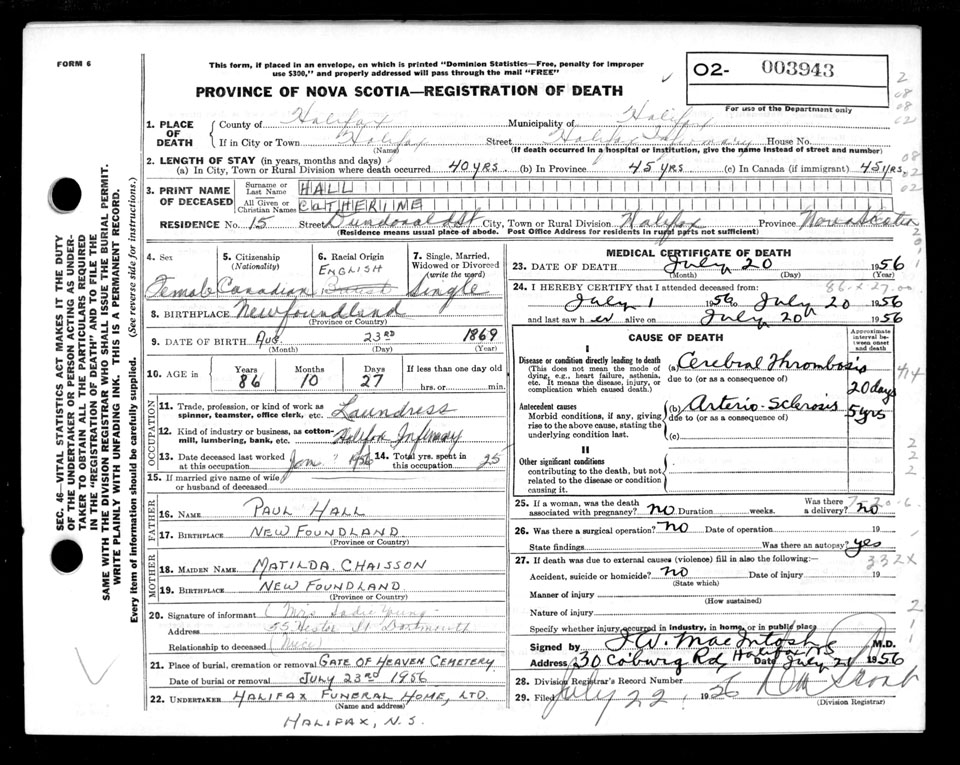 FORM 6
This form, if placed in an envelope, on which is printed "Dominion Statistics—Free, penalty for improper
use $300," and properly addressed will pass through the mail "FREE"
O2- 003943
For use of the Department only
PROVINCE OF NOVA SCOTIA—REGISTRATION OF DEATH
1. PLACE OF DEATH
County of Halifax Municipality of Halifax
If in City or Town Halifax Street Halifax Infirmary House No.
(Name) (If death occurred in a hospital or institution, give the name instead of street and number)
2. LENGTH OF STAY (in years, months and days)
(a) In City, Town or Rural Division where death occurred 40 yrs (b) In Province 45 yrs (c) In Canada (if immigrant) 45 yrs
3. PRINT NAME OF DECEASED
Surname or Last Name HALL
All Given or Christian Names CATHERINE
RESIDENCE No. 15 Street Dundonald St City, Town or Rural Division Halifax Province Nova Scotia
(Residence means usual place of abode. Post Office Address for residents in rural parts not sufficient)
4. Sex 5. Citizenship (Nationality) 6. Racial Origin 7. Single, Married, Widowed or Divorced (write the word)
ENGLISH
Female Canadian British Single
8. BIRTHPLACE Newfoundland
(Province or Country)
9. DATE OF BIRTH Aug. 23RD 1869
(Month) (Day) (Year)
10. AGE in Years Months Days If less than one day old
86 10 27 hrs. or min.
OCCUPATION
11. Trade, profession, or kind of work as spinner, teamster, office clerk, etc. Laundress
12. Kind of industry or business, as cotton-mill, lumbering, bank, etc. Halifax Infirmary
13. Date deceased last worked at this occupation Jan 1956 14. Total yrs. spent in this occupation 25
15. If married give name of wife or husband of deceased
FATHER
16. Name PAUL HALL
17. Birthplace NEW FOUNDLAND
(Province or Country)
MOTHER
18. MAIDEN NAME. MATILDA CHAISSON
19. BIRTHPLACE NEW FOUNDLAND
(Province or Country)
20. Signature of informant (Mrs Sadie Young
Address 55 Hester St Dartmouth
Relationship to deceased (Niece)
21. Place of burial, cremation or removal GATE OF HEAVEN CEMETERY
Date of burial or removal JULY 23RD 1956
22. UNDERTAKER HALIFAX FUNERAL HOME, LTD.
(Name and address)
HALIFAX, N.S.
MEDICAL CERTIFICATE OF DEATH
23. DATE OF DEATH July 20 1956
(Month) (Day)
24. I HEREBY CERTIFY that I attended deceased from: 86 x 27.00
July 1 1956 to July 20 1956
and last saw her alive on July 20th 1956
CAUSE OF DEATH
Approximate interval between onset and death
I
Disease or condition directly leading to death
(This does not mean the mode of dying, e.g., heart failure, asthenia, etc. It means the disease, injury, or complication which caused death.)
(a) Cerebral Thrombosis
due to (or as a consequence of) 20 days
Antecedent causes
Morbid conditions, if any, giving rise to the above cause, stating the underlying condition last.
(b) Arterio-Sclerosis 5 yrs
due to (or as a consequence of)
(c)
II
Other significant conditions
contributing to the death, but not related to the disease or condition causing it.
25. If a woman, was the death associated with pregnancy? no Duration weeks. Was there a delivery? no
26. Was there a surgical operation? no Date of operation 19
State findings Was there an autopsy? yes
27. If death was due to external causes (violence) fill in also the following:— 332X
Accident, suicide or homicide? no Date of injury 19
(State which)
Manner of injury
(How sustained)
Nature of injury
Specify whether injury occurred in industry, in home, or in public place
Signed by J.W. MacIntosh M.D.
Address 30 Coburg Rd, Halifax NS Date July 21 1956
28. Division Registrar's Record Number
29. Filed July 22, 1956
(Division Registrar)
SEC. 46—VITAL STATISTICS ACT MAKES IT THE DUTY
OF THE UNDERTAKER OR PERSON ACTING AS UNDER-
TAKER TO OBTAIN ALL THE PARTICULARS REQUIRED
IN THE "REGISTRATION OF DEATH" AND TO FILE THE
SAME WITH THE DIVISION REGISTRAR WHO SHALL ISSUE THE BURIAL PERMIT.
WRITE PLAINLY WITH UNFADING INK. THIS IS A PERMANENT RECORD.
Every item of information should be carefully supplied. (See reverse side for instructions.)